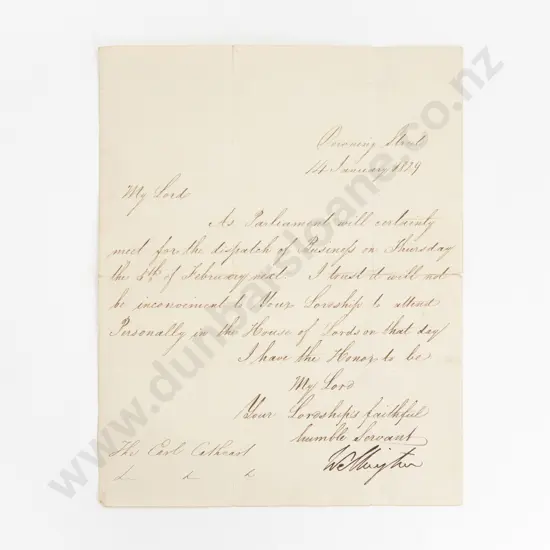 Downing Street
14 January 1829
My Lord
As Parliament will certainly
meet for the despatch of Business on Thursday
the 5th of February next I trust it will not
be inconvenient to Your Lordship to attend
Personally in the House of Lords on that day
I have the Honor to be
My Lord
Your Lordships faithful
humble Servant
Wellington
The Earl Cathcart
www.dunbarsloane.co.nz